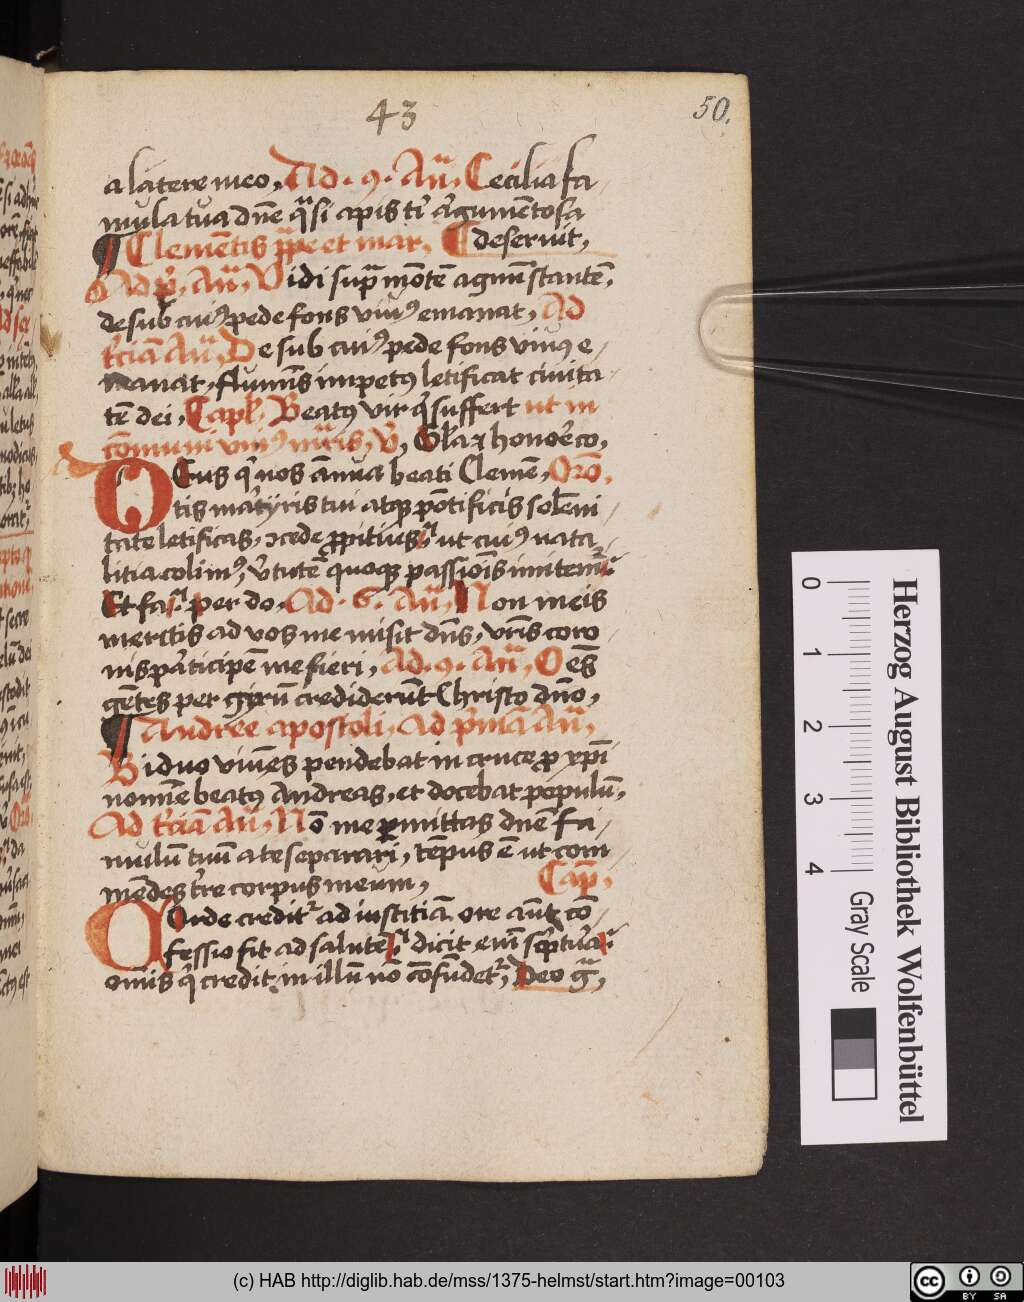 43
50.
a latere meo, Ad . 9 . Añ, Cecilia fa-
mula tua dñe qͣsi apis tiͥ argumētosa
¶ Clemētis ꝑpe et mar, ℂ deseruit,
Ad pͥ, Añ, Vidi supͣ mōtē agnū stantē,
de sub cuiꝰ pede fons viuꝰ emanat, Ad
tꝰciā Añ, De sub cuiꝰ pede fons viuꝰ e-
manat, flumīs impetꝰ letificat ciuita-
tē dei, Capl, Beatꝰ vir qͥ suffert ut in
cōmuni vniꝰ mr̄is, v̄, Glͣa ⁊ honoꝛe co,
DEus qͥ nos ānua beati Clemē, Orō,
tis martyris tui atqꝫ pōtificis solēni-
tate letificas, ↄcede ꝓpitius, ut cuiꝰ nata-
litia colimꝰ, v̓tutē quoqꝫ passiōis imitemur
Et fa. per do, Ad . 6 . Añ, Non meis
meritis ad vos me misit dn̄s, vr̄is coro-
nis participē me fieri, Ad . 9 . Añ, Oēs
gētes per girū crediderūt Christo dn̄o,
¶ Andree apostoli, Ad pͥmā Añ,
Biduo viuēs pendebat in cruce ꝓ xp̄i
nomīe beatꝰ Andreas, et docebat populū,
Ad tꝰciā Añ, Nō me ꝑmittas dn̄e fa-
mulū tuū a te separari, tēpus ē ut com-
mēdes tr̄e corpus meum, Cap,
Corde creditᷣ ad iustitiā ore aūt cō-
fessio fit ad salutē, dicit em̄ scͥptura
omīs qͥ credit in illū nō cōfūdetᷣ, Deo gͣ,
0 1 2 3 4
Herzog August Bibliothek Wolfenbüttel
Gray Scale
(c) HAB http://diglib.hab.de/mss/1375-helmst/start.htm?image=00103
cc BY SA